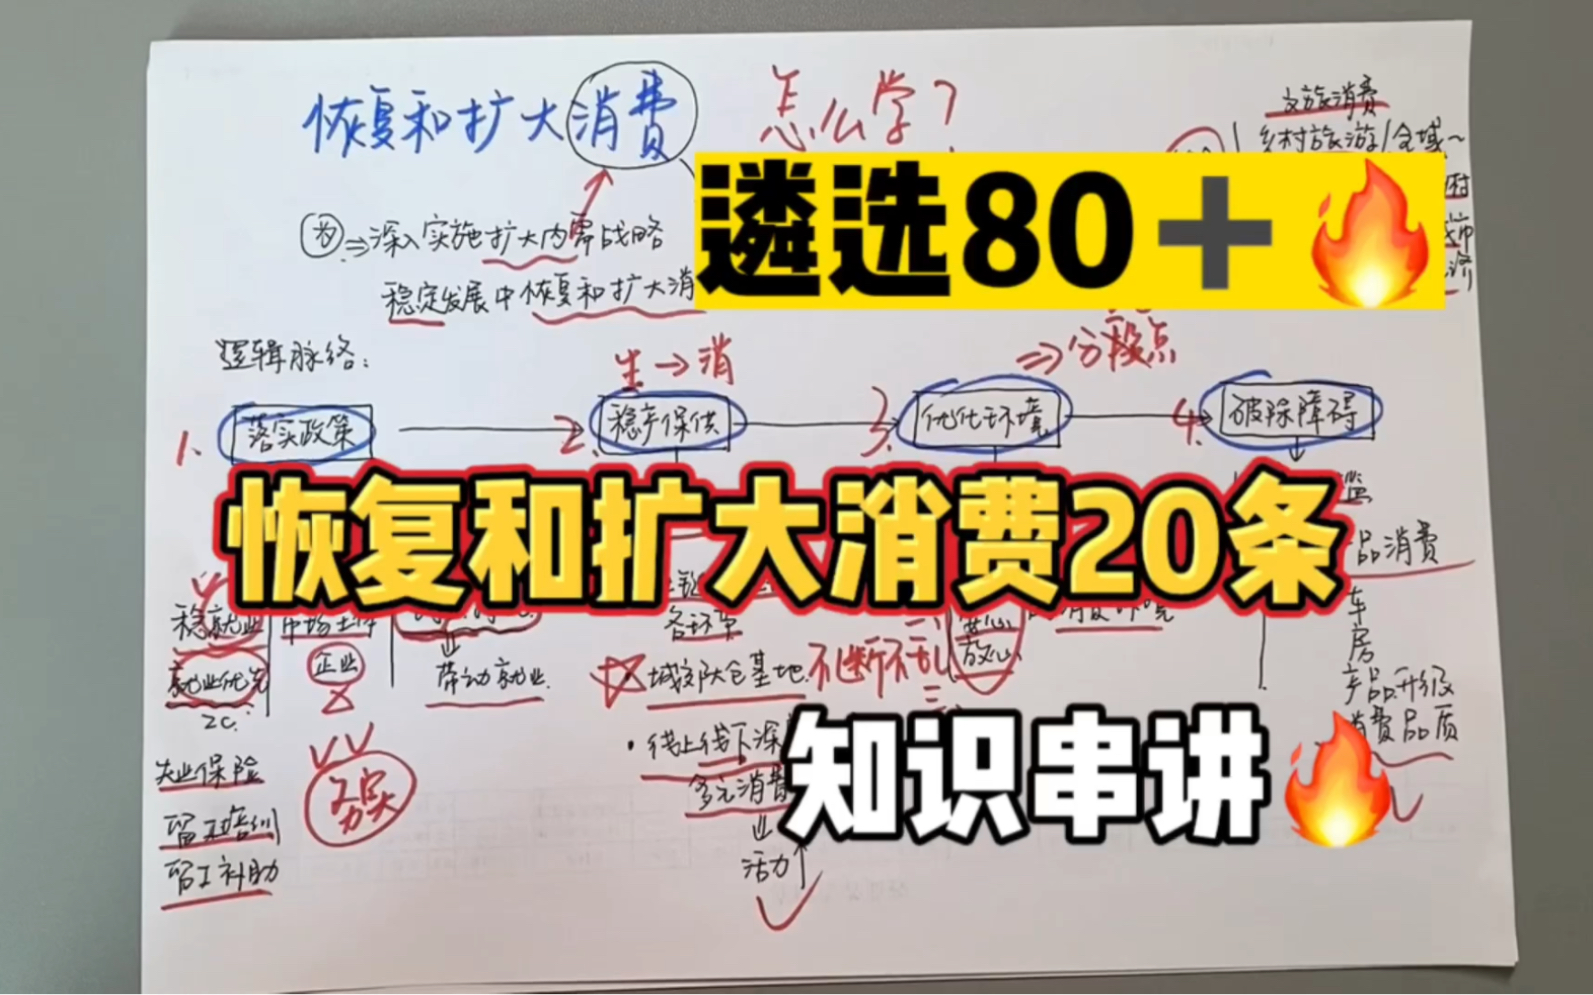 恢复和扩大消费 怎么学?
文旅消费
乡村旅游/全域~
遴选80+
为⇒深入实施扩大内需战略
稳定发展中恢复和扩大消
逻辑脉络:
生→消
⇒分段点
1. 落实政策
2. 稳产保供
3. 优化环境
4. 破除障碍
恢复和扩大消费20条
品消费
稳就业
市场主体
各环节
安心
放心
车
房
就业优先
2C.
企业
带动就业
城郊大仓基地 不断不乱
产品升级
消费品质
失业保险
务实
·线上线下深
多元消费
知识串讲
留工培训
留工补助
活力